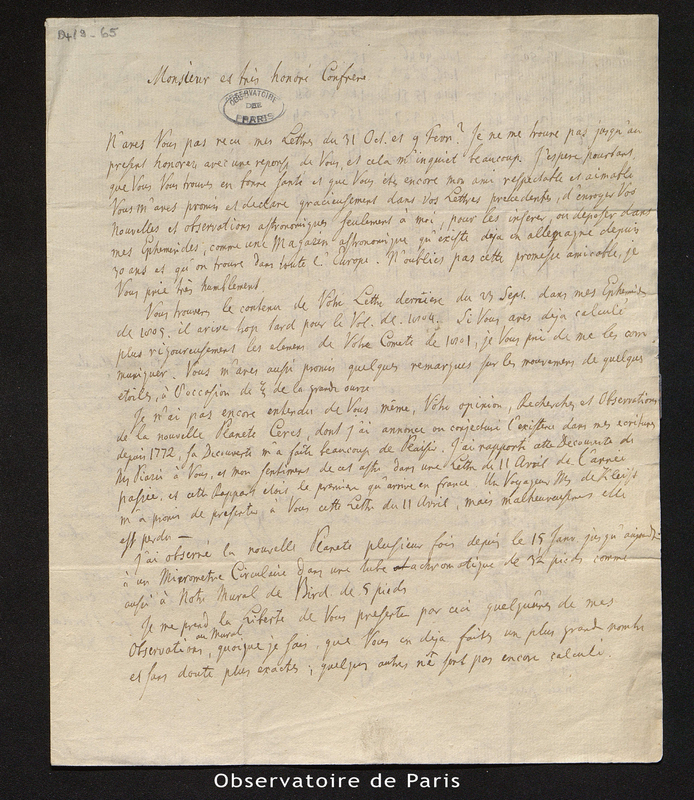 D4/9-65
Monsieur et très honoré Confrère
OBSERVATOIRE
DE
PARIS
N'avés Vous pas reçu mes Lettres du 31 Oct. et 9 Fevr? Je ne me trouve pas jusqu'au
present honorez avec une reponse de Vous, et cela m'inquiet beaucoup. J'espere pourtant
que Vous Vous trouves en bonne santé et que Vous étes encore mon ami respectable et aimable
Vous m'aves promis et declaré gracieusement dans vos Lettres precedente, d'envoyer Vos
nouvelles et observations astronomiques seulement à moi, pour les inserer, ou deposer dans
mes Ephemerides, comme une Magazin astronomique qu'existe deja en allemagne depuis
30 ans et qu'on trouve dans toute l'Europe. N'oublies pas cette promesse amicable, je
Vous prie très humblement.
Vous trouves le contenu de Votre Lettre derniere du 23 Sept. dans mes Ephemerid
de 1805. il arive trop tard pour le Vol. de 1804. Si Vous aves deja calculé
plus rigoureusement les elemens de Votre Comete de 1801, je Vous prie de me les com
muniquer. Vous m'aves aussi promis quelques remarques sur les mouvemens de quelques
etoiles, à l'occasion de ξ de la grande ourse
Je n'ai pas encore entendu de Vous même, Votre opinion, Recherches et Observations
de la nouvelle Planete Ceres, dont j'ai annonce ou conjecturé l'existence dans mes ecritures
depuis 1772, sa Decouverte m'a faite beaucoup de Plaisir. J'ai rapporté cette Decouverte de
Mr Piazzi à Vous, et mon sentiment de cet astre dans une Lettre de 11 Avril de l'année
passée, et cette Rapport etoit le premier qu'arrive en france. Un Voyageur Mr. de Kleist
m'a promis de presenter à Vous cette Lettre du 11 Avril, mais malheureusement elle
est perdu —
J'ai observé la nouvelle Planete plusieur fois depuis le 15 Janv. jusqu'aujourd'
à un Micrometre Circulaire dans une tube achromatique de 3½ pieds comme
aussi à Notre Mural de Bird de 5 pieds
Je me prend la Liberté de Vous presenter par ceci quelqu'unes de mes
Observations au Mural, quoique je sais, que Vous en deja faites un plus grand nombre
et sans doute plus exactes; quelques autres n'ét sont pas encore calculé.
Observatoire de Paris